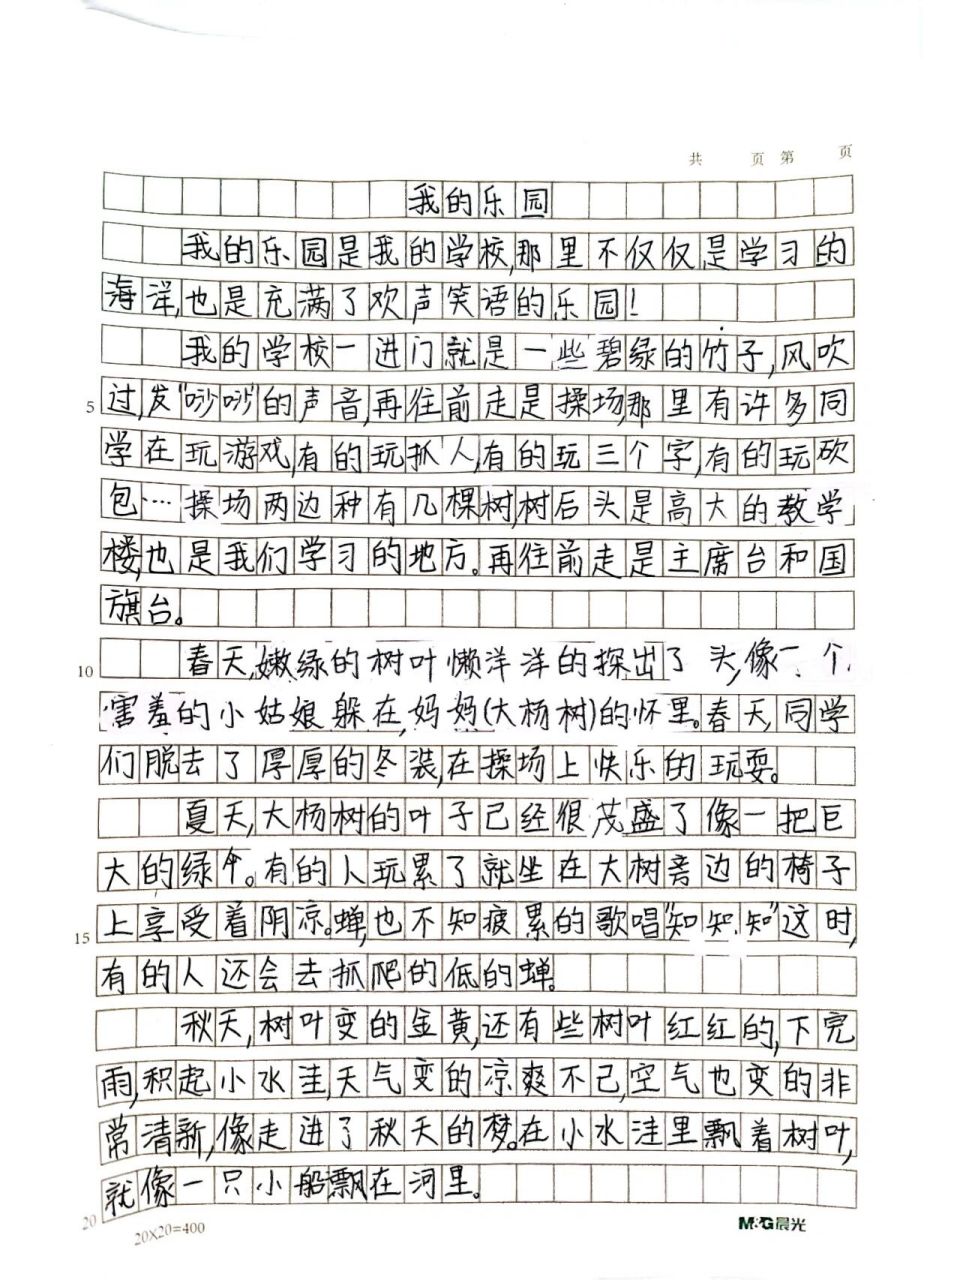 共 页 第 页
我的乐园
我的乐园是我的学校,那里不仅仅是学习的
海洋,也是充满了欢声笑语的乐园!
我的学校一进门就是一些碧绿的竹子,风吹
5 过,发“唦唦”的声音,再往前走是操场,那里有许多同
学在玩游戏,有的玩抓人,有的玩三个字,有的玩砍
包…操场两边种有几棵树,树后头是高大的教学
楼,也是我们学习的地方。再往前走是主席台和国
旗台。
10 春天,嫩绿的树叶懒洋洋的探出了头,像一个
害羞的小姑娘躲在,妈妈(大杨树)的怀里。春天,同学
们脱去了厚厚的冬装,在操场上快乐的玩耍。
夏天,大杨树的叶子已经很茂盛了像一把巨
大的绿伞。有的人玩累了就坐在大树旁边的椅子
15 上享受着阴凉。蝉,也不知疲累的歌唱“知、知、知”这时,
有的人还会去抓爬的低的蝉。
秋天,树叶变的金黄,还有些树叶红红的,下完
雨,积起小水洼,天气变的凉爽不己,空气也变的非
常清新,像走进了秋天的梦。在小水洼里飘着树叶,
20 就像一只小船飘在河里。
20×20=400
M&G晨光